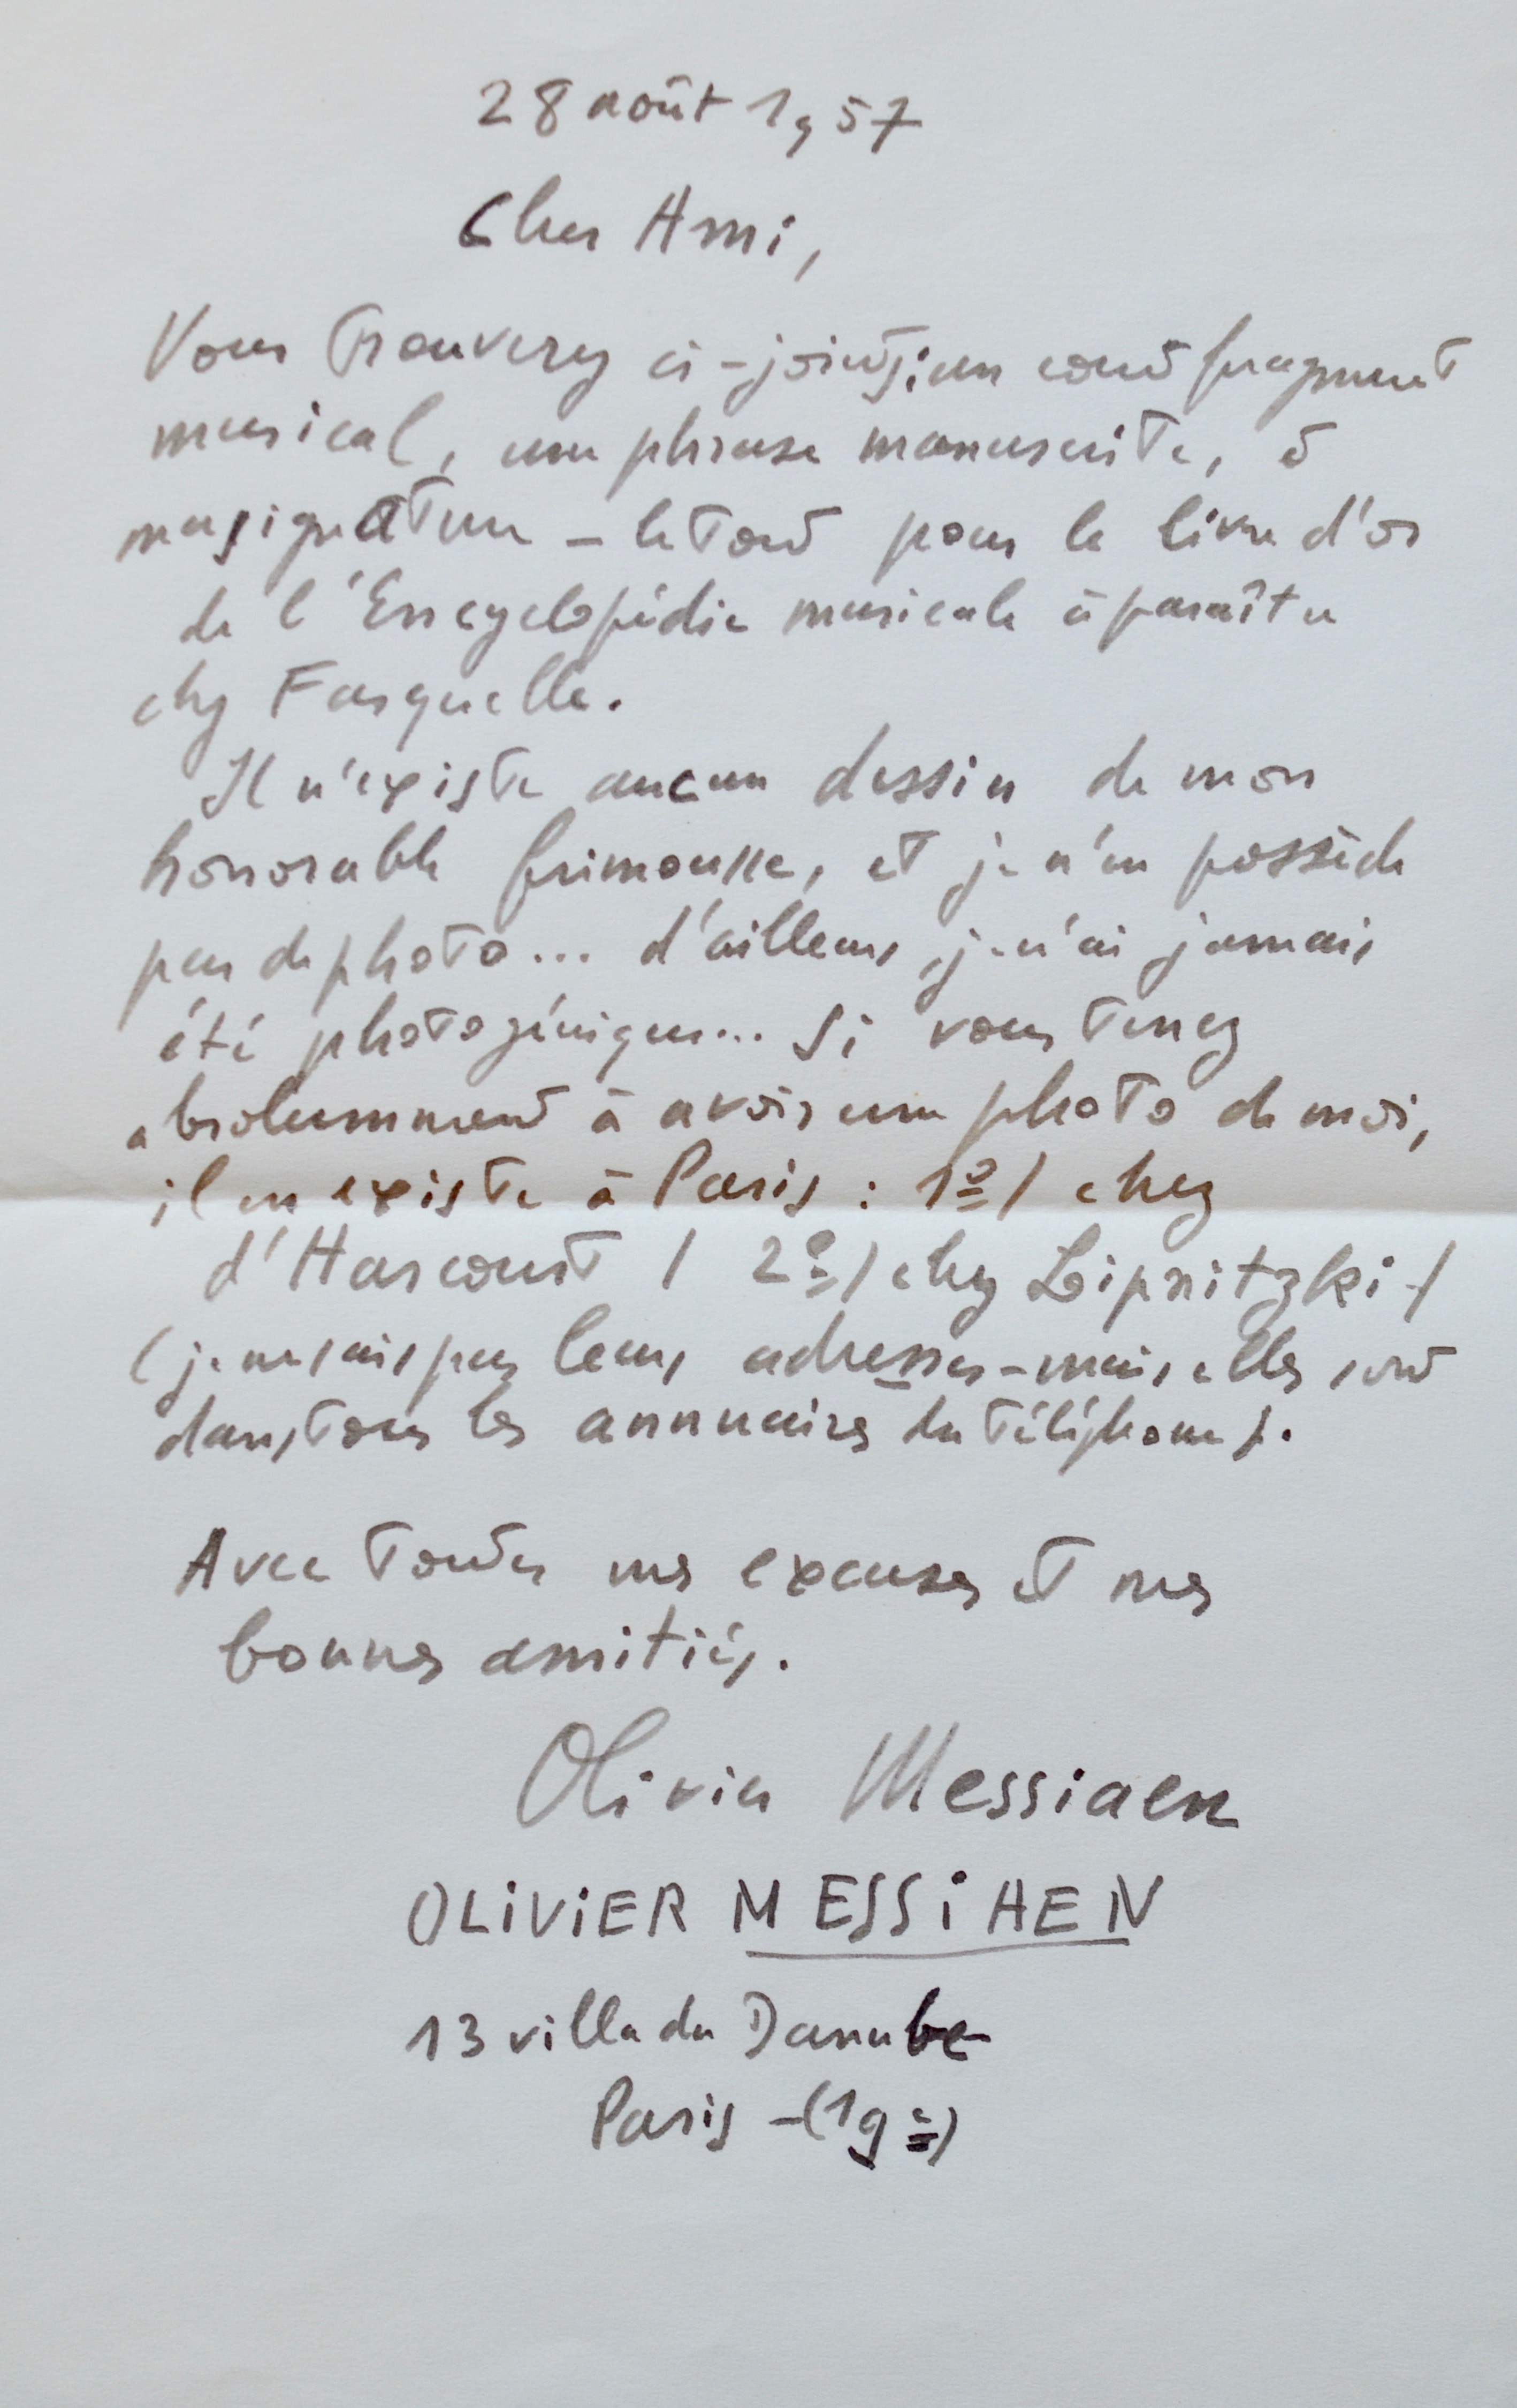 28 août 1957
Cher Ami,
Vous trouverez ci-joints: un court fragment
musical, une phrase manuscrite, et
ma signature – le tout pour le livre d'or
de l'Encyclopédie musicale à paraître
chez Fasquelle.
Il n'existe aucun dessin de mon
honorable frimousse, et je n'en possède
pas de photo... d'ailleurs, je n'ai jamais
été photogénique... Si vous tenez
absolumment à avoir une photo de moi,
il en existe à Paris : 1º/ chez
d'Harcourt / 2º/ chez Lipnitzki /
(je ne sais pas leurs adresses – mais elles sont
dans tous les annuaires du téléphone).
Avec toutes mes excuses et mes
bonnes amitiés.
Olivier Messiaen
OLiViER MESSiAEN
13 villa du Danube
Paris – (19e)